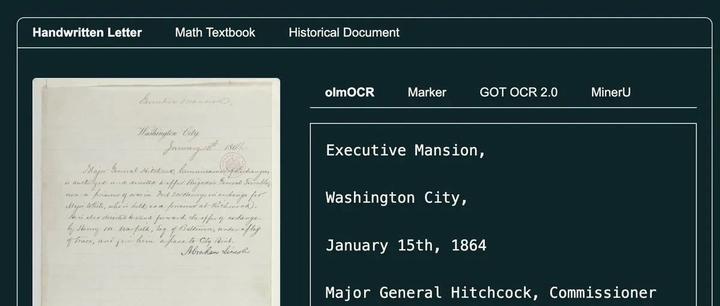 Handwritten Letter Math Textbook Historical Document
olmOCR Marker GOT OCR 2.0 MinerU
Executive Mansion,
Washington City,
January 15th, 1864
Major General Hitchcock, Commissioner
Executive Mansion,
Washington City,
January 15th 1864
Major General Hitchcock, Commissioner of Exchanges,
is authorized and directed to offer Brigadier General Trimble,
now a prisoner of war in Fort McHenry in exchange for
Major White, who is held as a prisoner at Richmond.
He is also directed to send forward the offer of exchange
by Henry M. Warfield, Esq. of Baltimore, under a flag
of truce, and give him a pass to City Point.
Abraham Lincoln